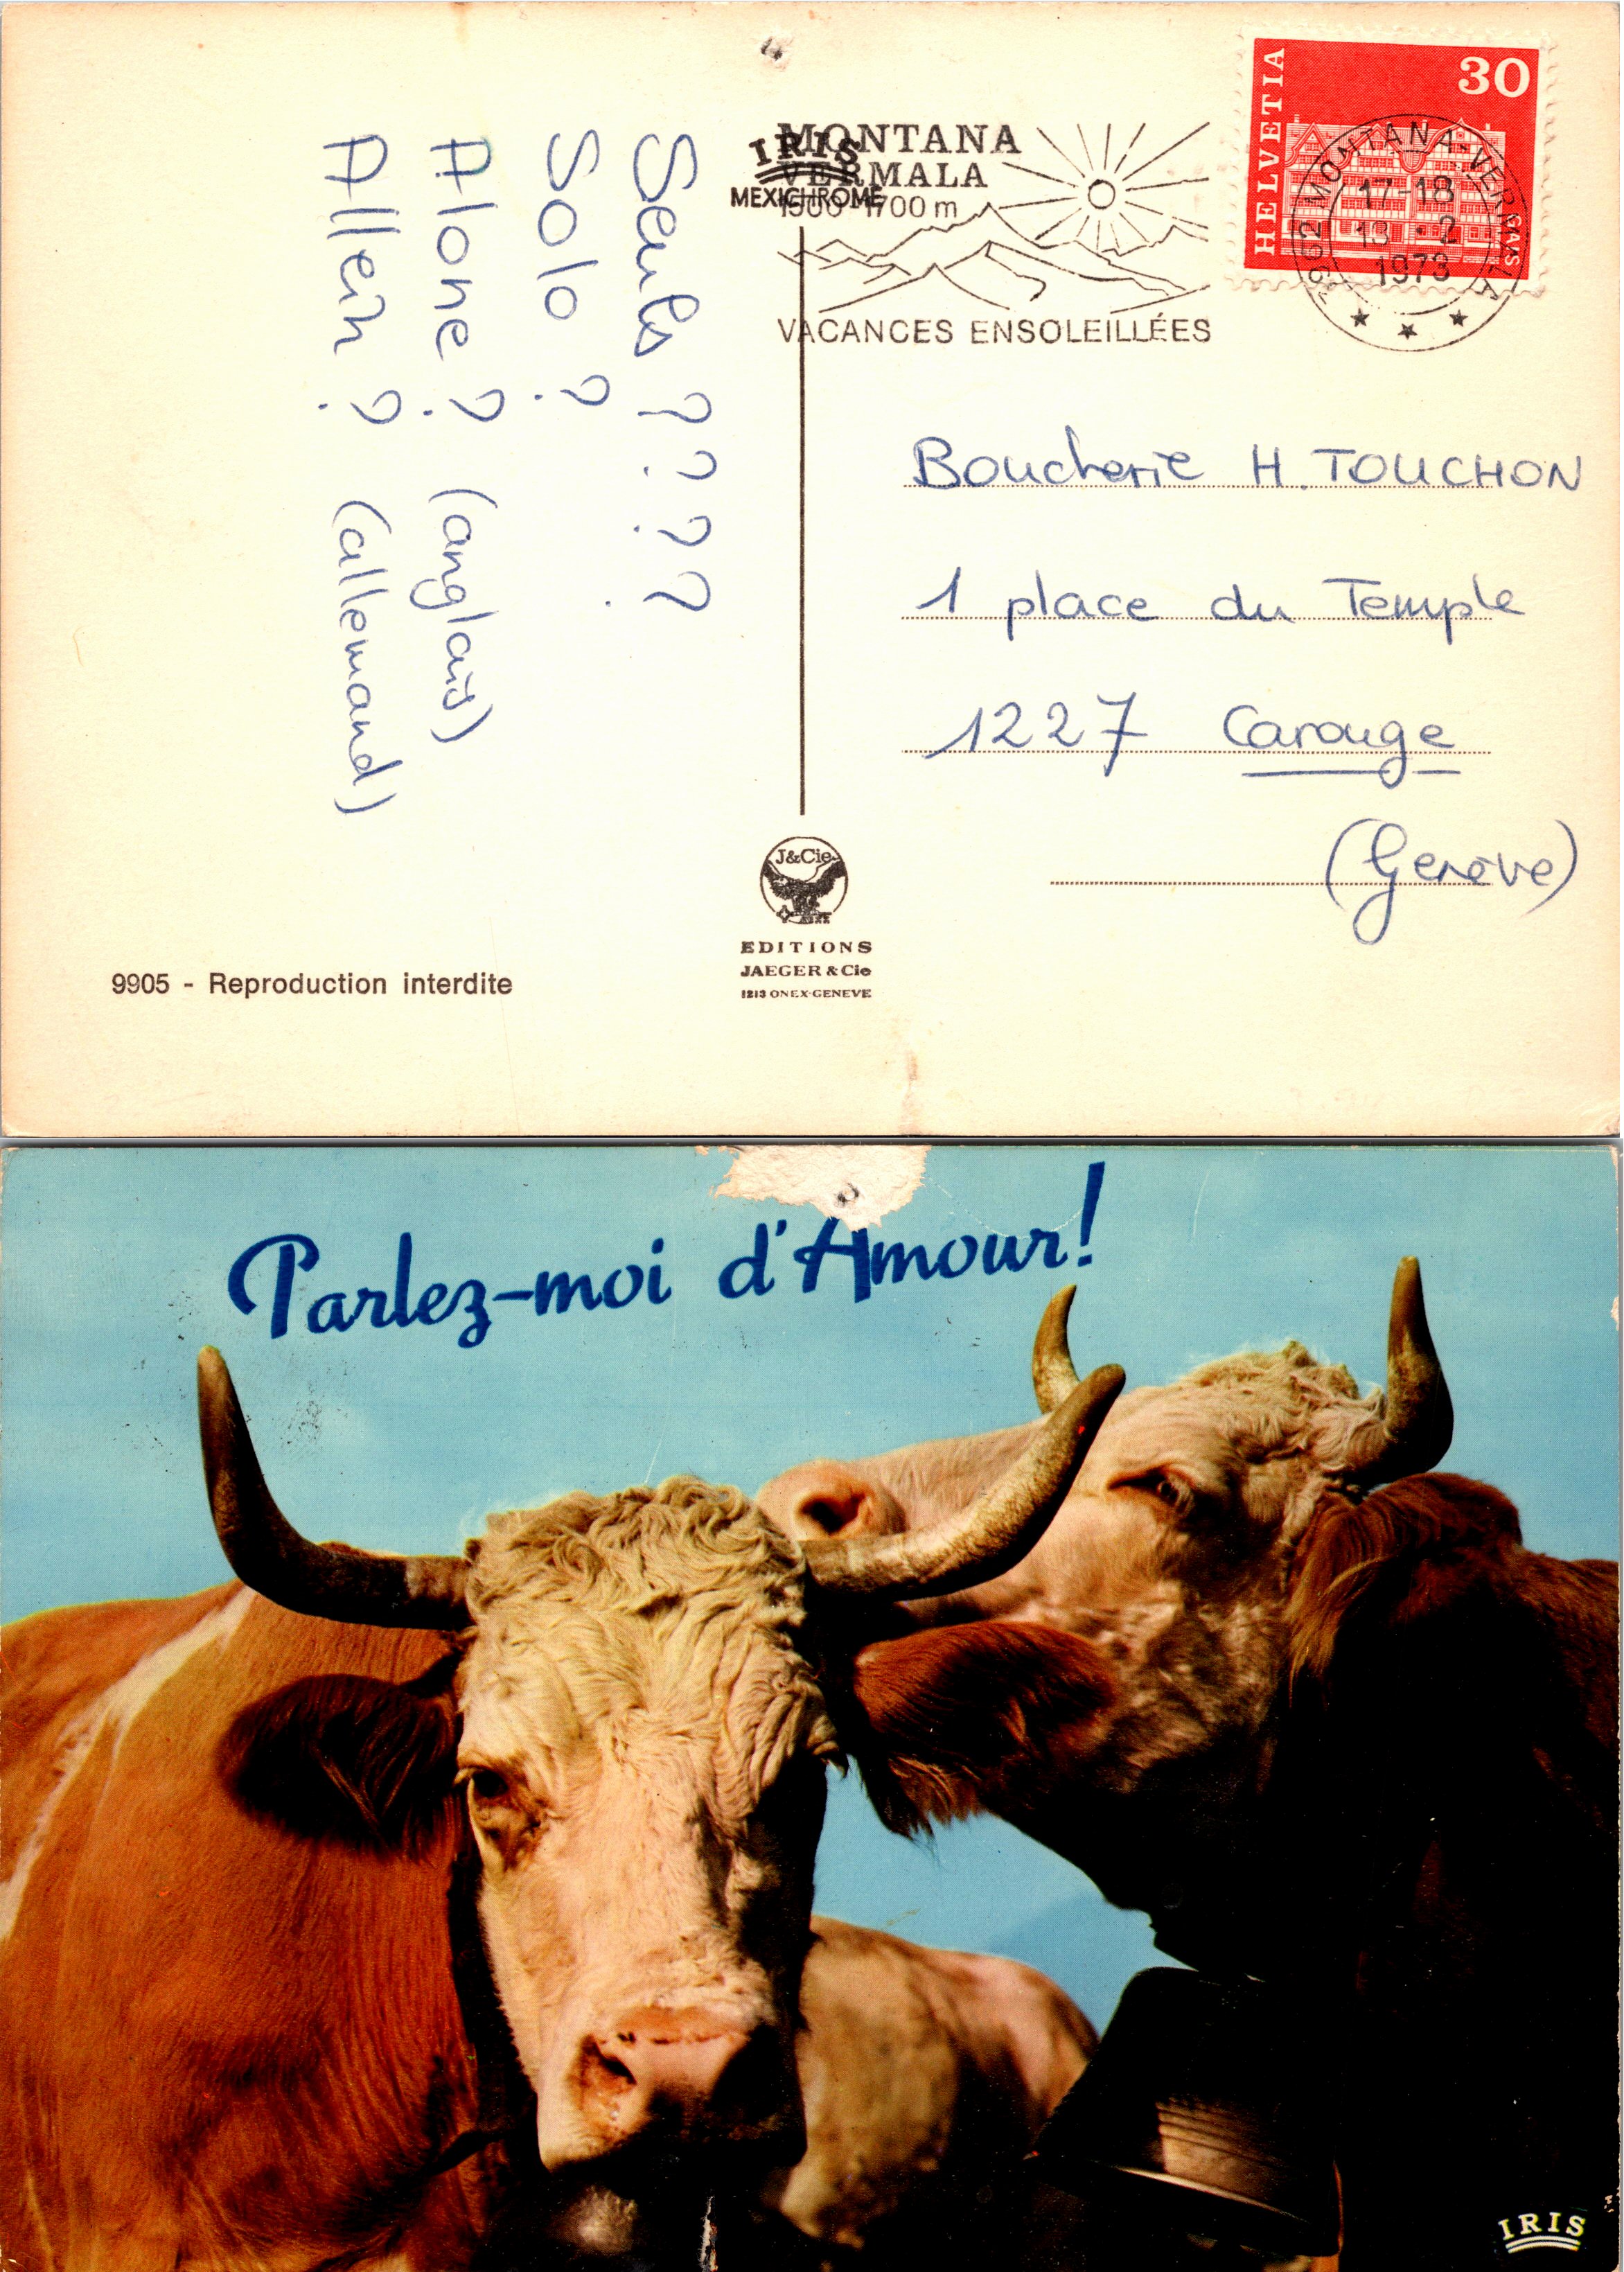 Seuls ? ? ? ?
Solo ?
Alone ? (anglais)
Allein ? (allemand)
IRIS
MEXICHROME
MONTANA
VERMALA
1500-1700 m
VACANCES ENSOLEILLÉES
HELVETIA
30
3962 MONTANA-VERMALA
17-18
13.-2
1973
GAIS
Boucherie H. TOUCHON
1 place du Temple
1227 Carouge
(Genève)
J&Cie
EDITIONS
JAEGER & Cie
1213 ONEX-GENEVE
9905 - Reproduction interdite
Parlez-moi d'Amour!
IRIS